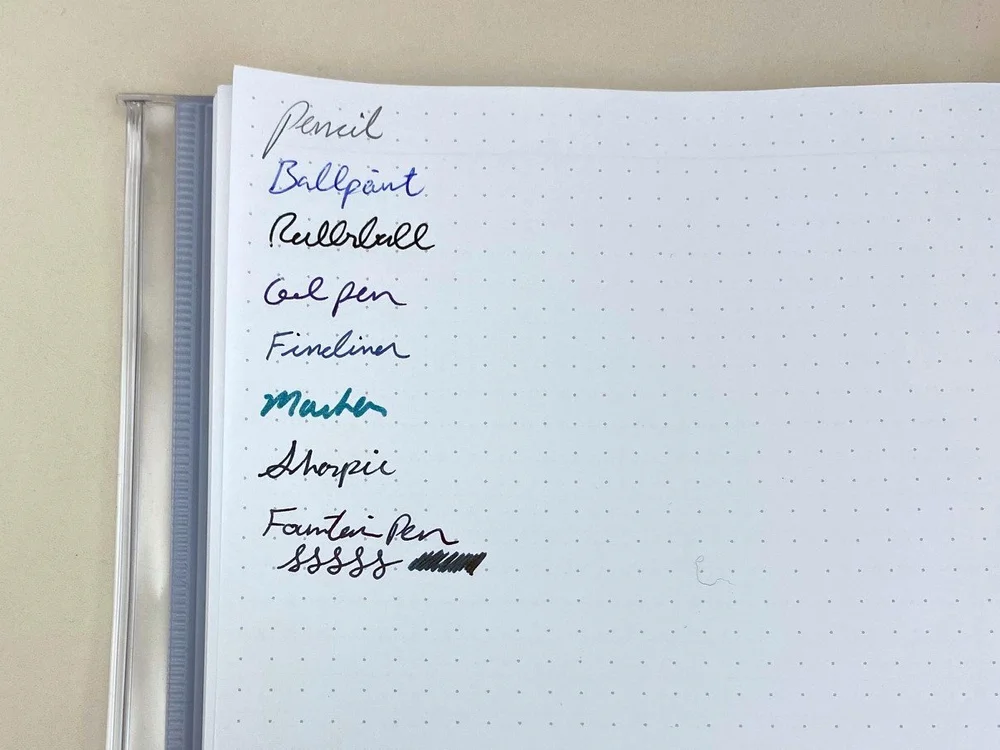 Pencil
Ballpoint
Rollerball
Gel pen
Fineliner
Marker
Sharpie
Fountain Pen